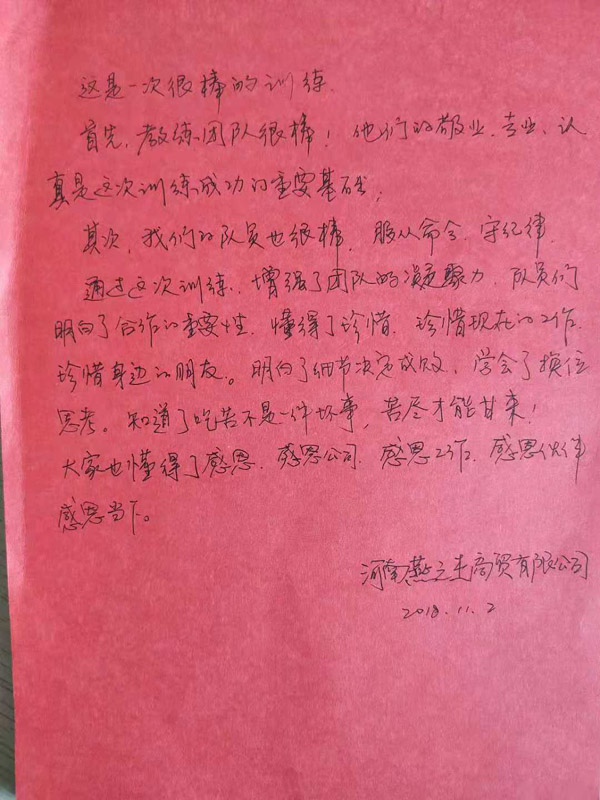 这是一次很棒的训练.
首先,教练团队很棒!他们的敬业、专业、认
真是这次训练成功的重要基础;
其次,我们的队员也很棒,服从命令、守纪律,
通过这次训练,增强了团队的凝聚力,队员们
明白了合作的重要性,懂得了珍惜,珍惜现在的工作,
珍惜身边的朋友。明白了细节决定成败,学会了换位
思考。知道了吃苦不是一件坏事,苦尽才能甘来!
大家也懂得了感恩,感恩公司,感恩工作,感恩伙伴
感恩当下。
河南燕之生商贸有限公司
2018.11.2